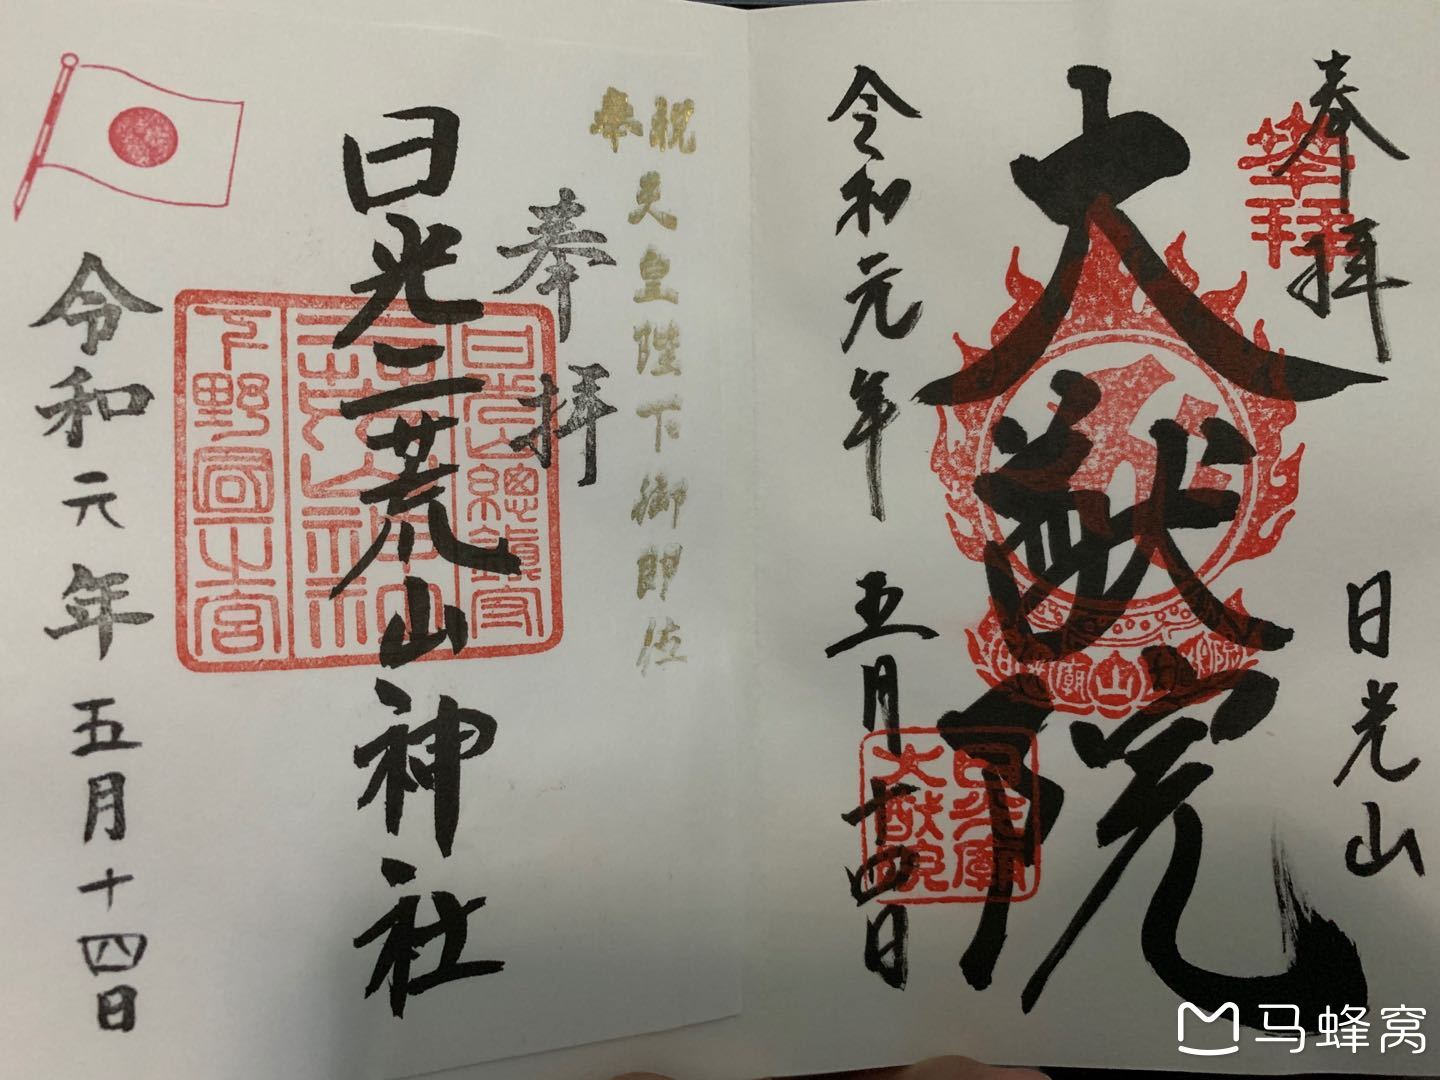 奉拝
日光山
大猷院
令和元年
五月十四日
奉拝
日光廟
大猷院
奉祝
天皇陛下御即位
奉拝
日光二荒山神社
令和元年五月十四日
日光山總鎮守
二荒山神社
下野國一之宮
马蜂窝